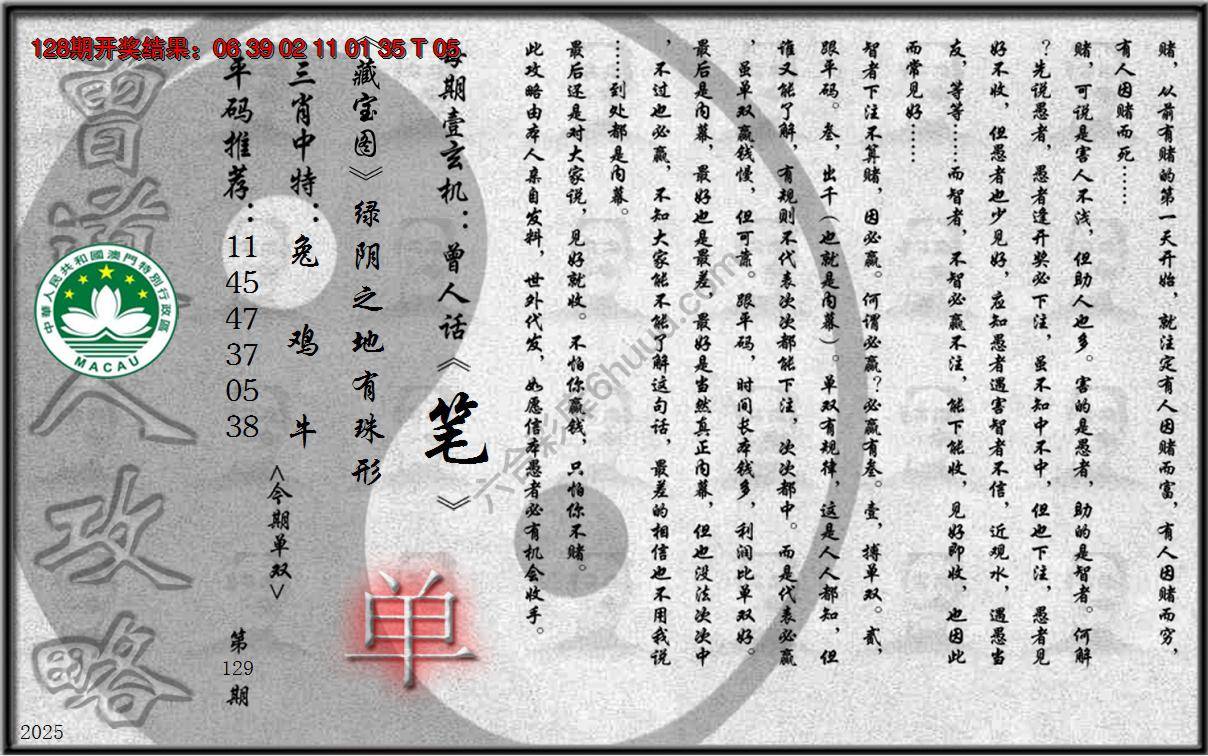 128期开奖结果：06 39 02 11 01 35 T 05
赌，从前有赌的第一天开始，就注定有人因赌而富，有人因赌而穷，
有人因赌而死……
赌，可说是害人不浅，但助人也多。害的是愚者，助的是智者。何解
？先说愚者，愚者逢开奖必下注，虽不知中不中，但也下注，愚者见
好不收，但愚者也少见好，应知愚者遇害智者不信，近观水，遇愚当
友，等等……而智者，不智必赢不注，能下能收，见好即收，也因此
而常见好……
智者下注不算赌，因必赢。何谓必赢？必赢有叁。壹，搏单双。贰，
跟平码。叁，出千（也就是内幕）。单双有规律，这是人人都知，但
谁又能了解，有规则不代表次次都能下注，次次都中。而是代表必赢
，虽单双赢钱慢，但可靠。跟平码，时间长本钱多，利润比单双好。
最后是内幕，最好也是最差，最好是当然真正内幕，但也没法次次中
，不过也必赢，不知大家能不能了解这句话，最差的相信也不用我说
……到处都是内幕。
最后还是对大家说，见好就收。不怕你赢钱，只怕你不赌。
此攻略由本人亲自发料，世外代发，如愿信本愚者必有机会收手。
每期壹玄机：曾人话《笔》
《藏宝图》绿阴之地有珠形
单
三肖中特：兔 鸡 牛
<今期单双>
平码推荐：
11
45
47
37
05
38
第
129
期
曾道人攻略
中華人民共和國澳門特別行政區
MACAU
六合彩库6huuu.com
2025